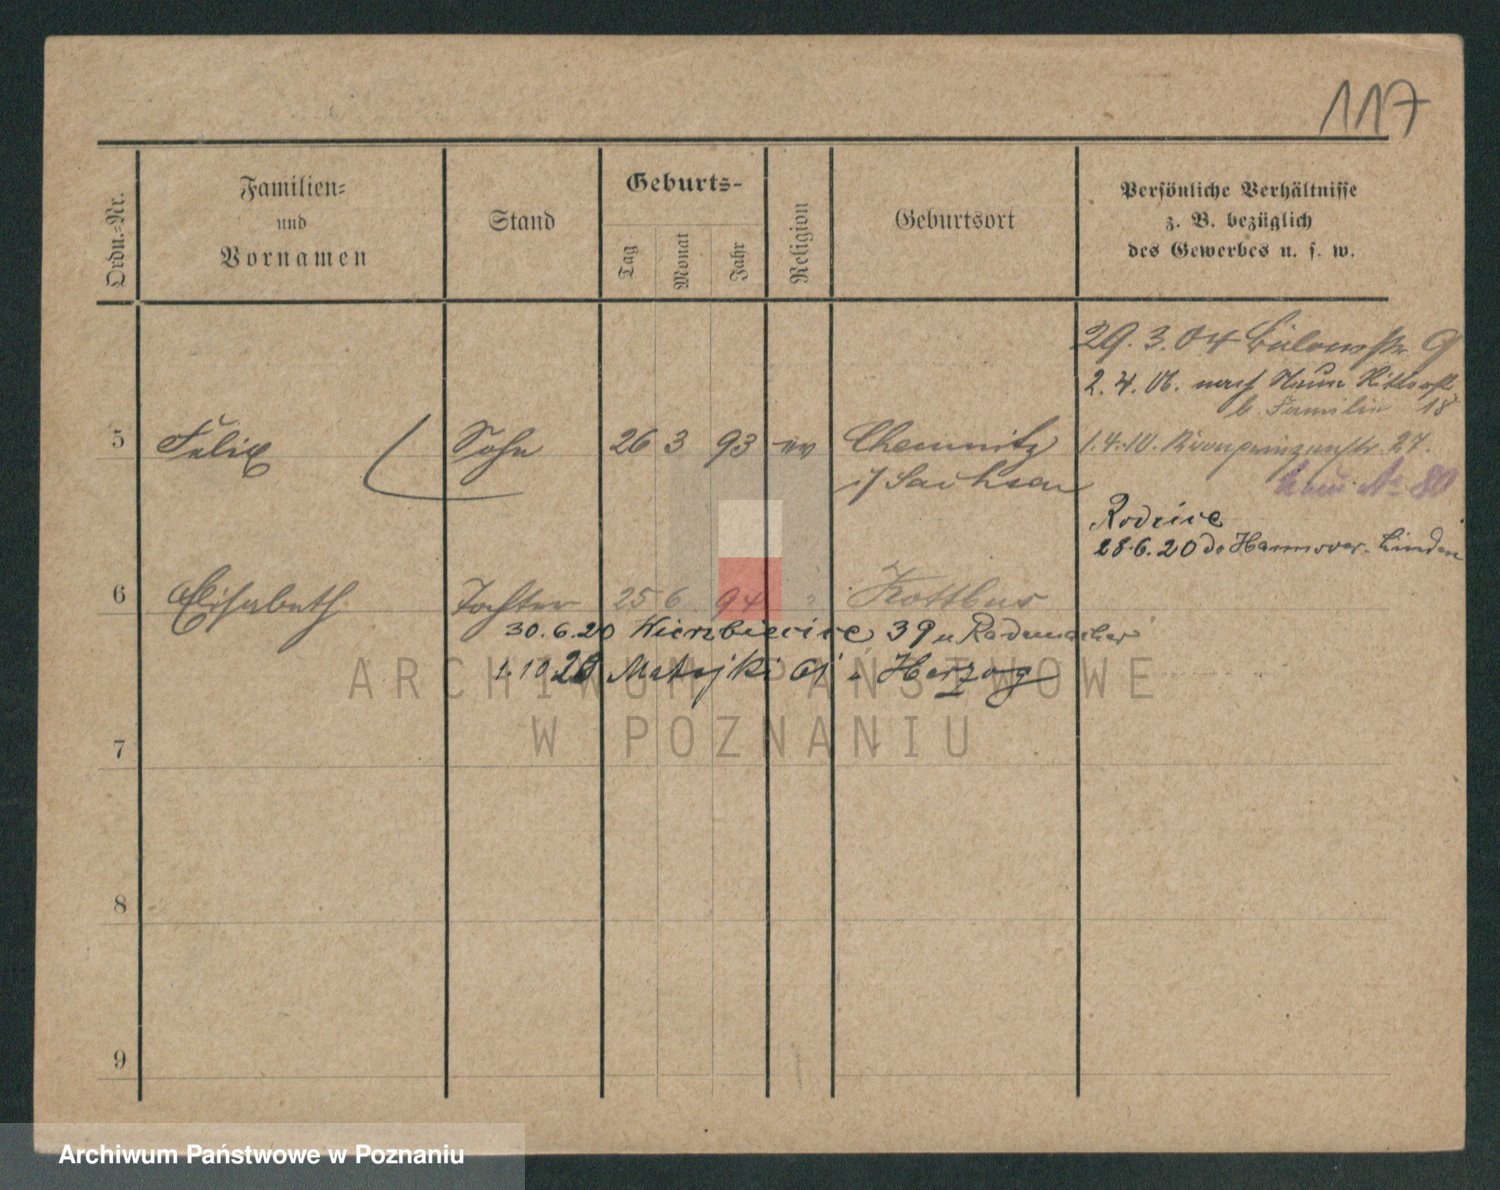 117
Ordn.-Nr.
Familien-
und
Vornamen
Stand
Geburts-
Tag
Monat
Jahr
Religion
Geburtsort
Persönliche Verhältnisse
z. B. bezüglich
des Gewerbes u. s. w.
29. 3. 04 Bülowstr. 9
2. 4. 06. nach
b. Familie 18
5 Felix Sohn 26 3 93 ev Chemnitz 1.4.10. Kronprinzenstr. 27.
i/ Sachsen
No 80
Rodzice
28.6.20 do Hannover-Linden
6 Elisabeth Tochter 25 6 94 " Kottbus
30.6.20 Wierzbięcice 39 u Rademacher
1.10 20 Matejki 61 u Herzog
ARCHIWUM PAŃSTWOWE
W POZNANIU
7
8
9
Archiwum Państwowe w Poznaniu